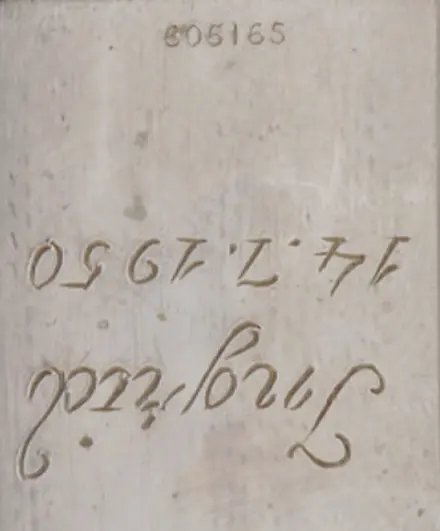 605165
Ingrid
14.2.1950